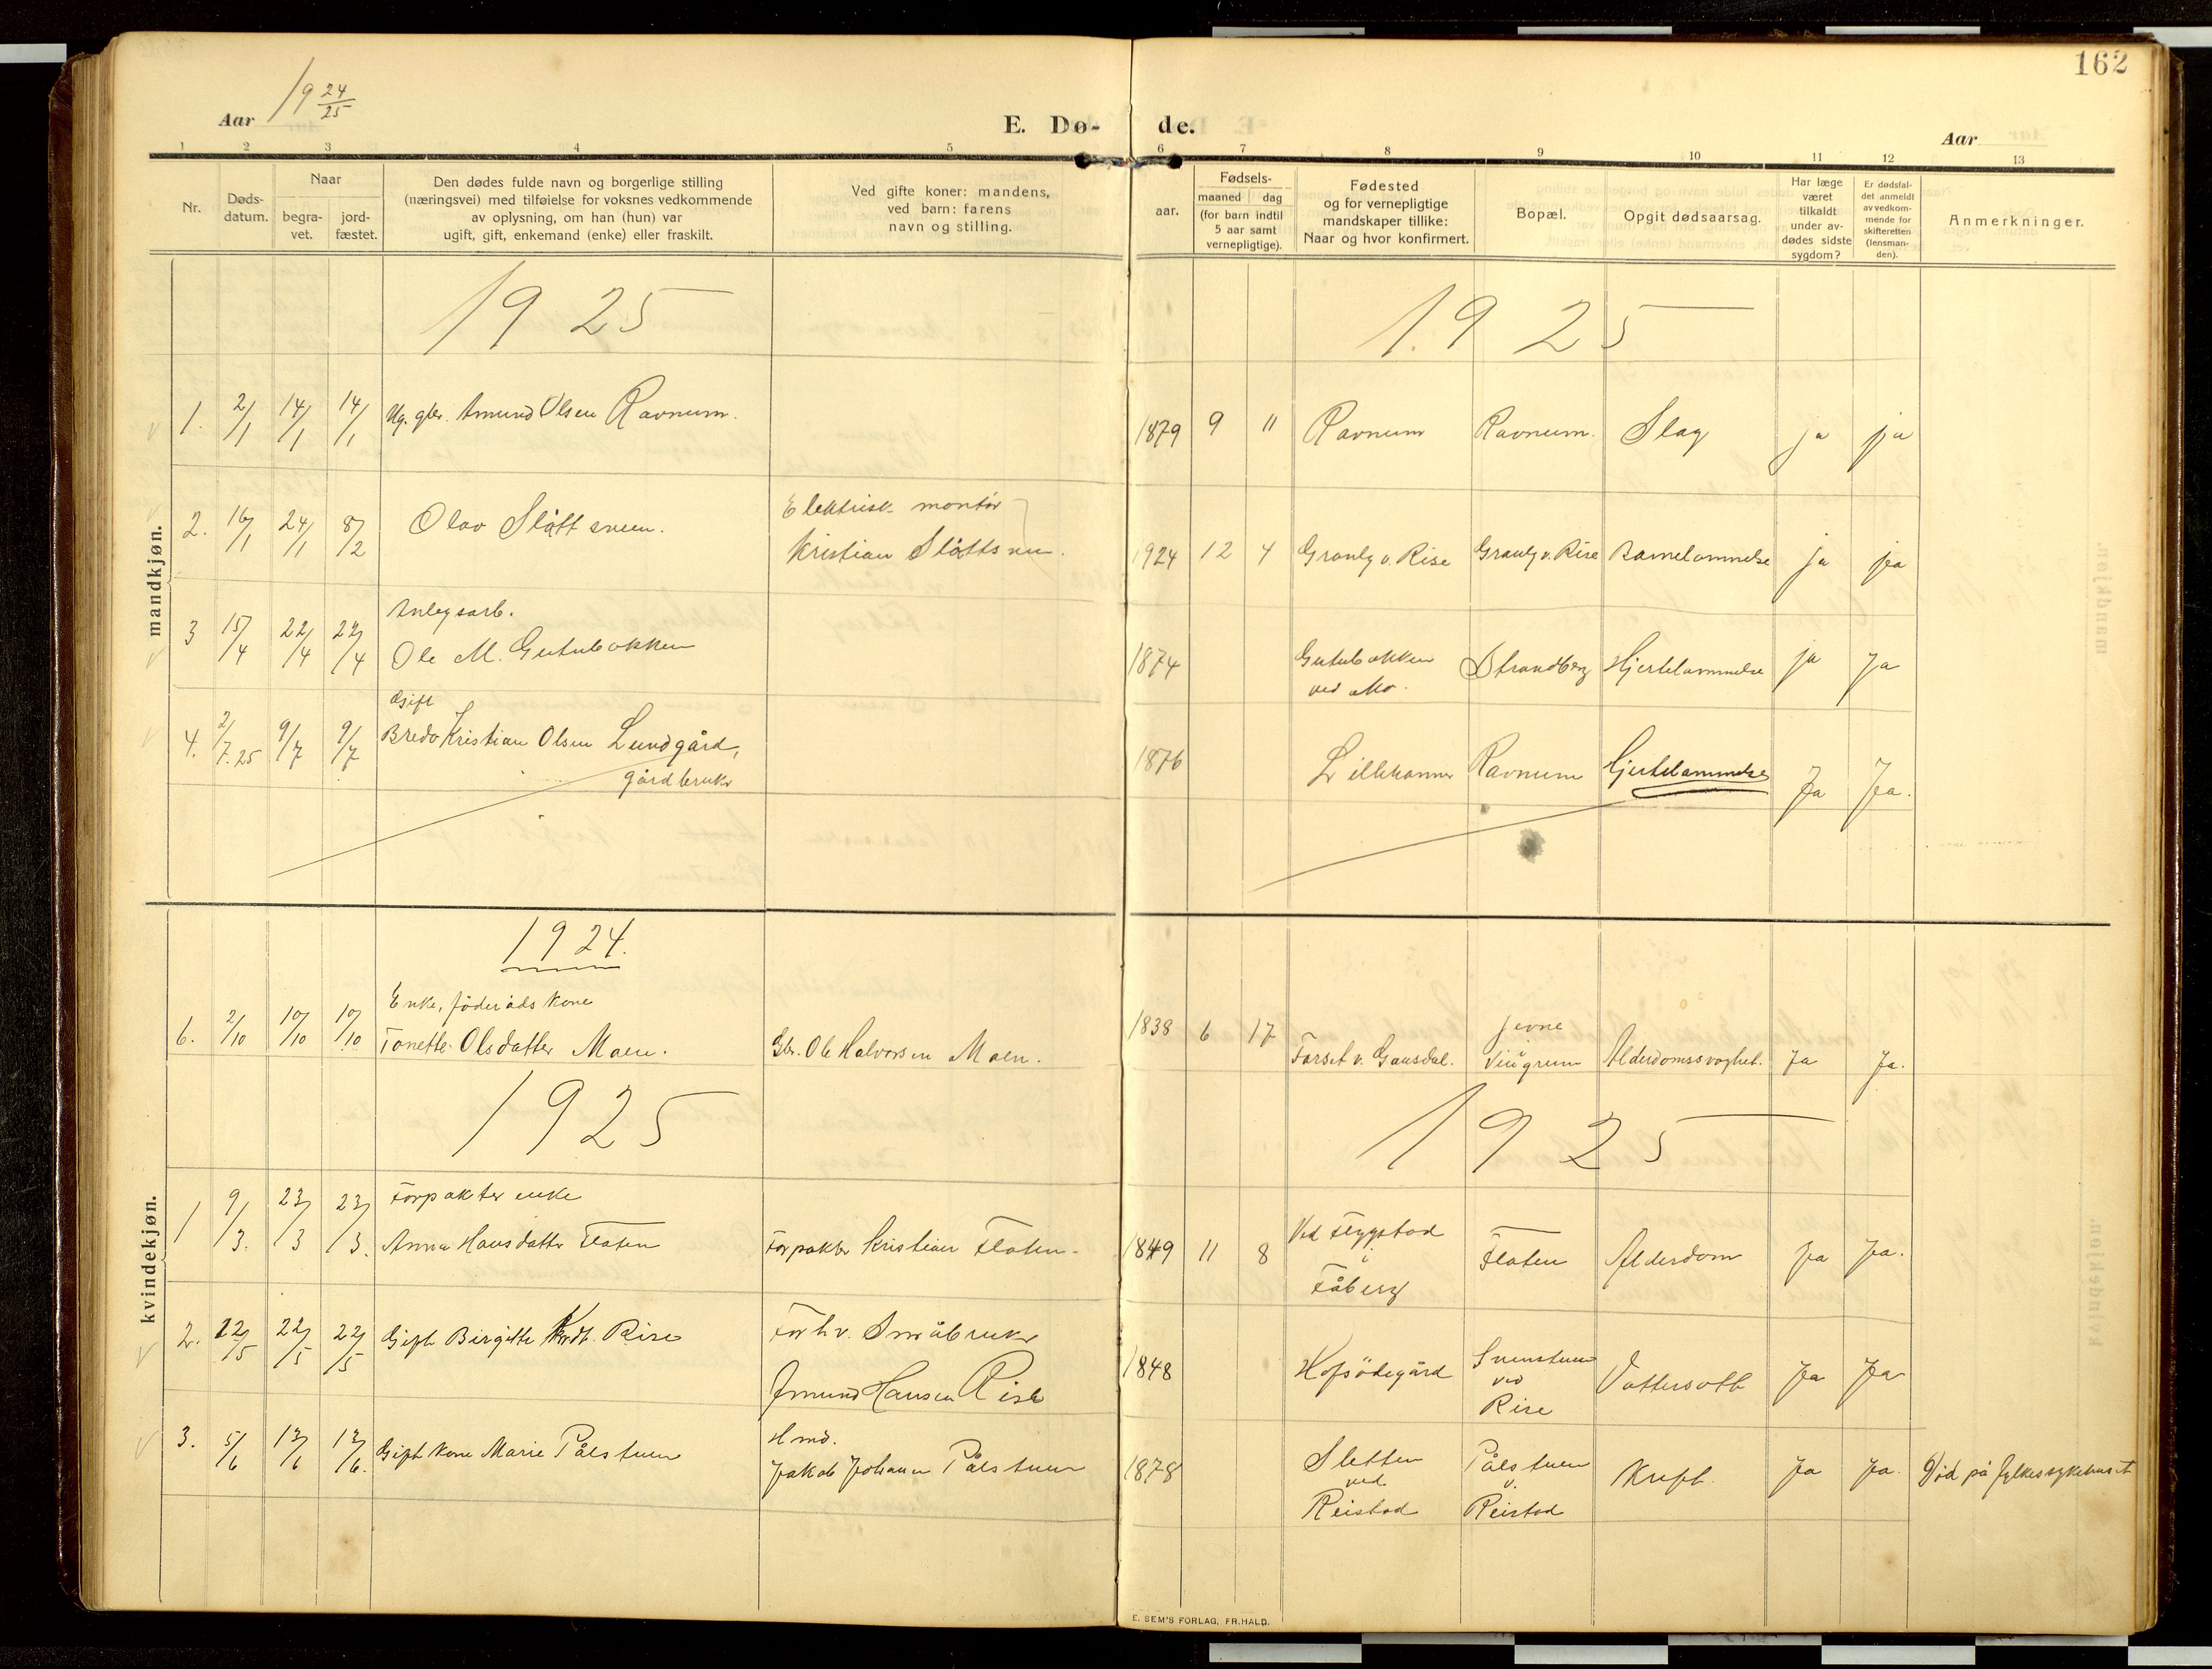 162
Aar 19 24/25
E. Dø-
de.
Aar
1 2 3 4 5
6 7 8 9 10 11 12 13
Nr.
Døds-
datum.
Naar
begra-
vet.
jord-
fæstet.
Den dødes fulde navn og borgerlige stilling
(næringsvei) med tilføielse for voksnes vedkommende
av oplysning, om han (hun) var
ugift, gift, enkemand (enke) eller fraskilt.
Ved gifte koner: mandens,
ved barn: farens
navn og stilling.
aar.
Fødsels-
maaned dag
(for barn indtil
5 aar samt
vernepligtige).
Fødested
og for vernepligtige
mandskaper tillike:
Naar og hvor konfirmert.
Bopæl.
Opgit dødsaarsag.
Har læge
været
tilkaldt
under av-
dødes sidste
sygdom?
Er dødsfal-
det anmeldt
av vedkom-
mende for
skifteretten
(lensman-
den).
Anmerkninger.
mandkjøn.
1925
1925
1. 2/1 14/1 14/1 Ug. gbr. Amund Olsen Ravnum.
1879 9 11 Ravnum Ravnum. Slag ja ja
2. 16/1 24/1 8/2 Olav Slåttsveen.
Elektrisk montör
Kristian Slåttsveen.
1924 12 4 Granly v. Rise Granly v. Rise ja ja
3 15/4 22/4 22/4 Anlegsarb.
Ole M. Gutubakken
1874 Gutubakken
ved Mo.
Strandberg Hjertelammelse ja Ja
4. 2/7.25 9/7 9/7 Gift
Bredo Kristian Olsen Lundgård,
gårdbruker
1876 Lillehammer Ravnum Hjertelammelse Ja Ja.
kvindekjøn.
1924.
6. 2/10 10/10 10/10 Enke, föderådskone
Tonette Olsdatter Moen.
Gbr. Ole Halvorsen Moen.
1838 6 17 Forset v. Gausdal.
Jevne
Vingrom Alderdomssvaghet. Ja Ja.
1925
1925
1 9/3. 23/3 23/3. Forpakter enke
Anna Hansdatter Flaten
Forpakter Kristian Flaten.
1849 11 8 Ved Flygstad
i
Fåberg
Flaten Alderdom Ja Ja.
2. 22/5 22/5 22/5 Gift Birgitte Rise
Forhv. Småbruker
Amund Hansen Rise
1848 Hofsödegård
Svenstuen
ved
Rise
Vattersott Ja Ja
3. 5/6 12/6 12/6. Gift kone Marie Pålstuen
Hmd.
Jakob Johansen Pålstuen
1878 Sletten
ved
Reistad
Pålstuen
v.
Reistad
Kreft. Ja Ja. Död på fylkessykehuset
E. SEM'S FORLAG, FR.HALD.